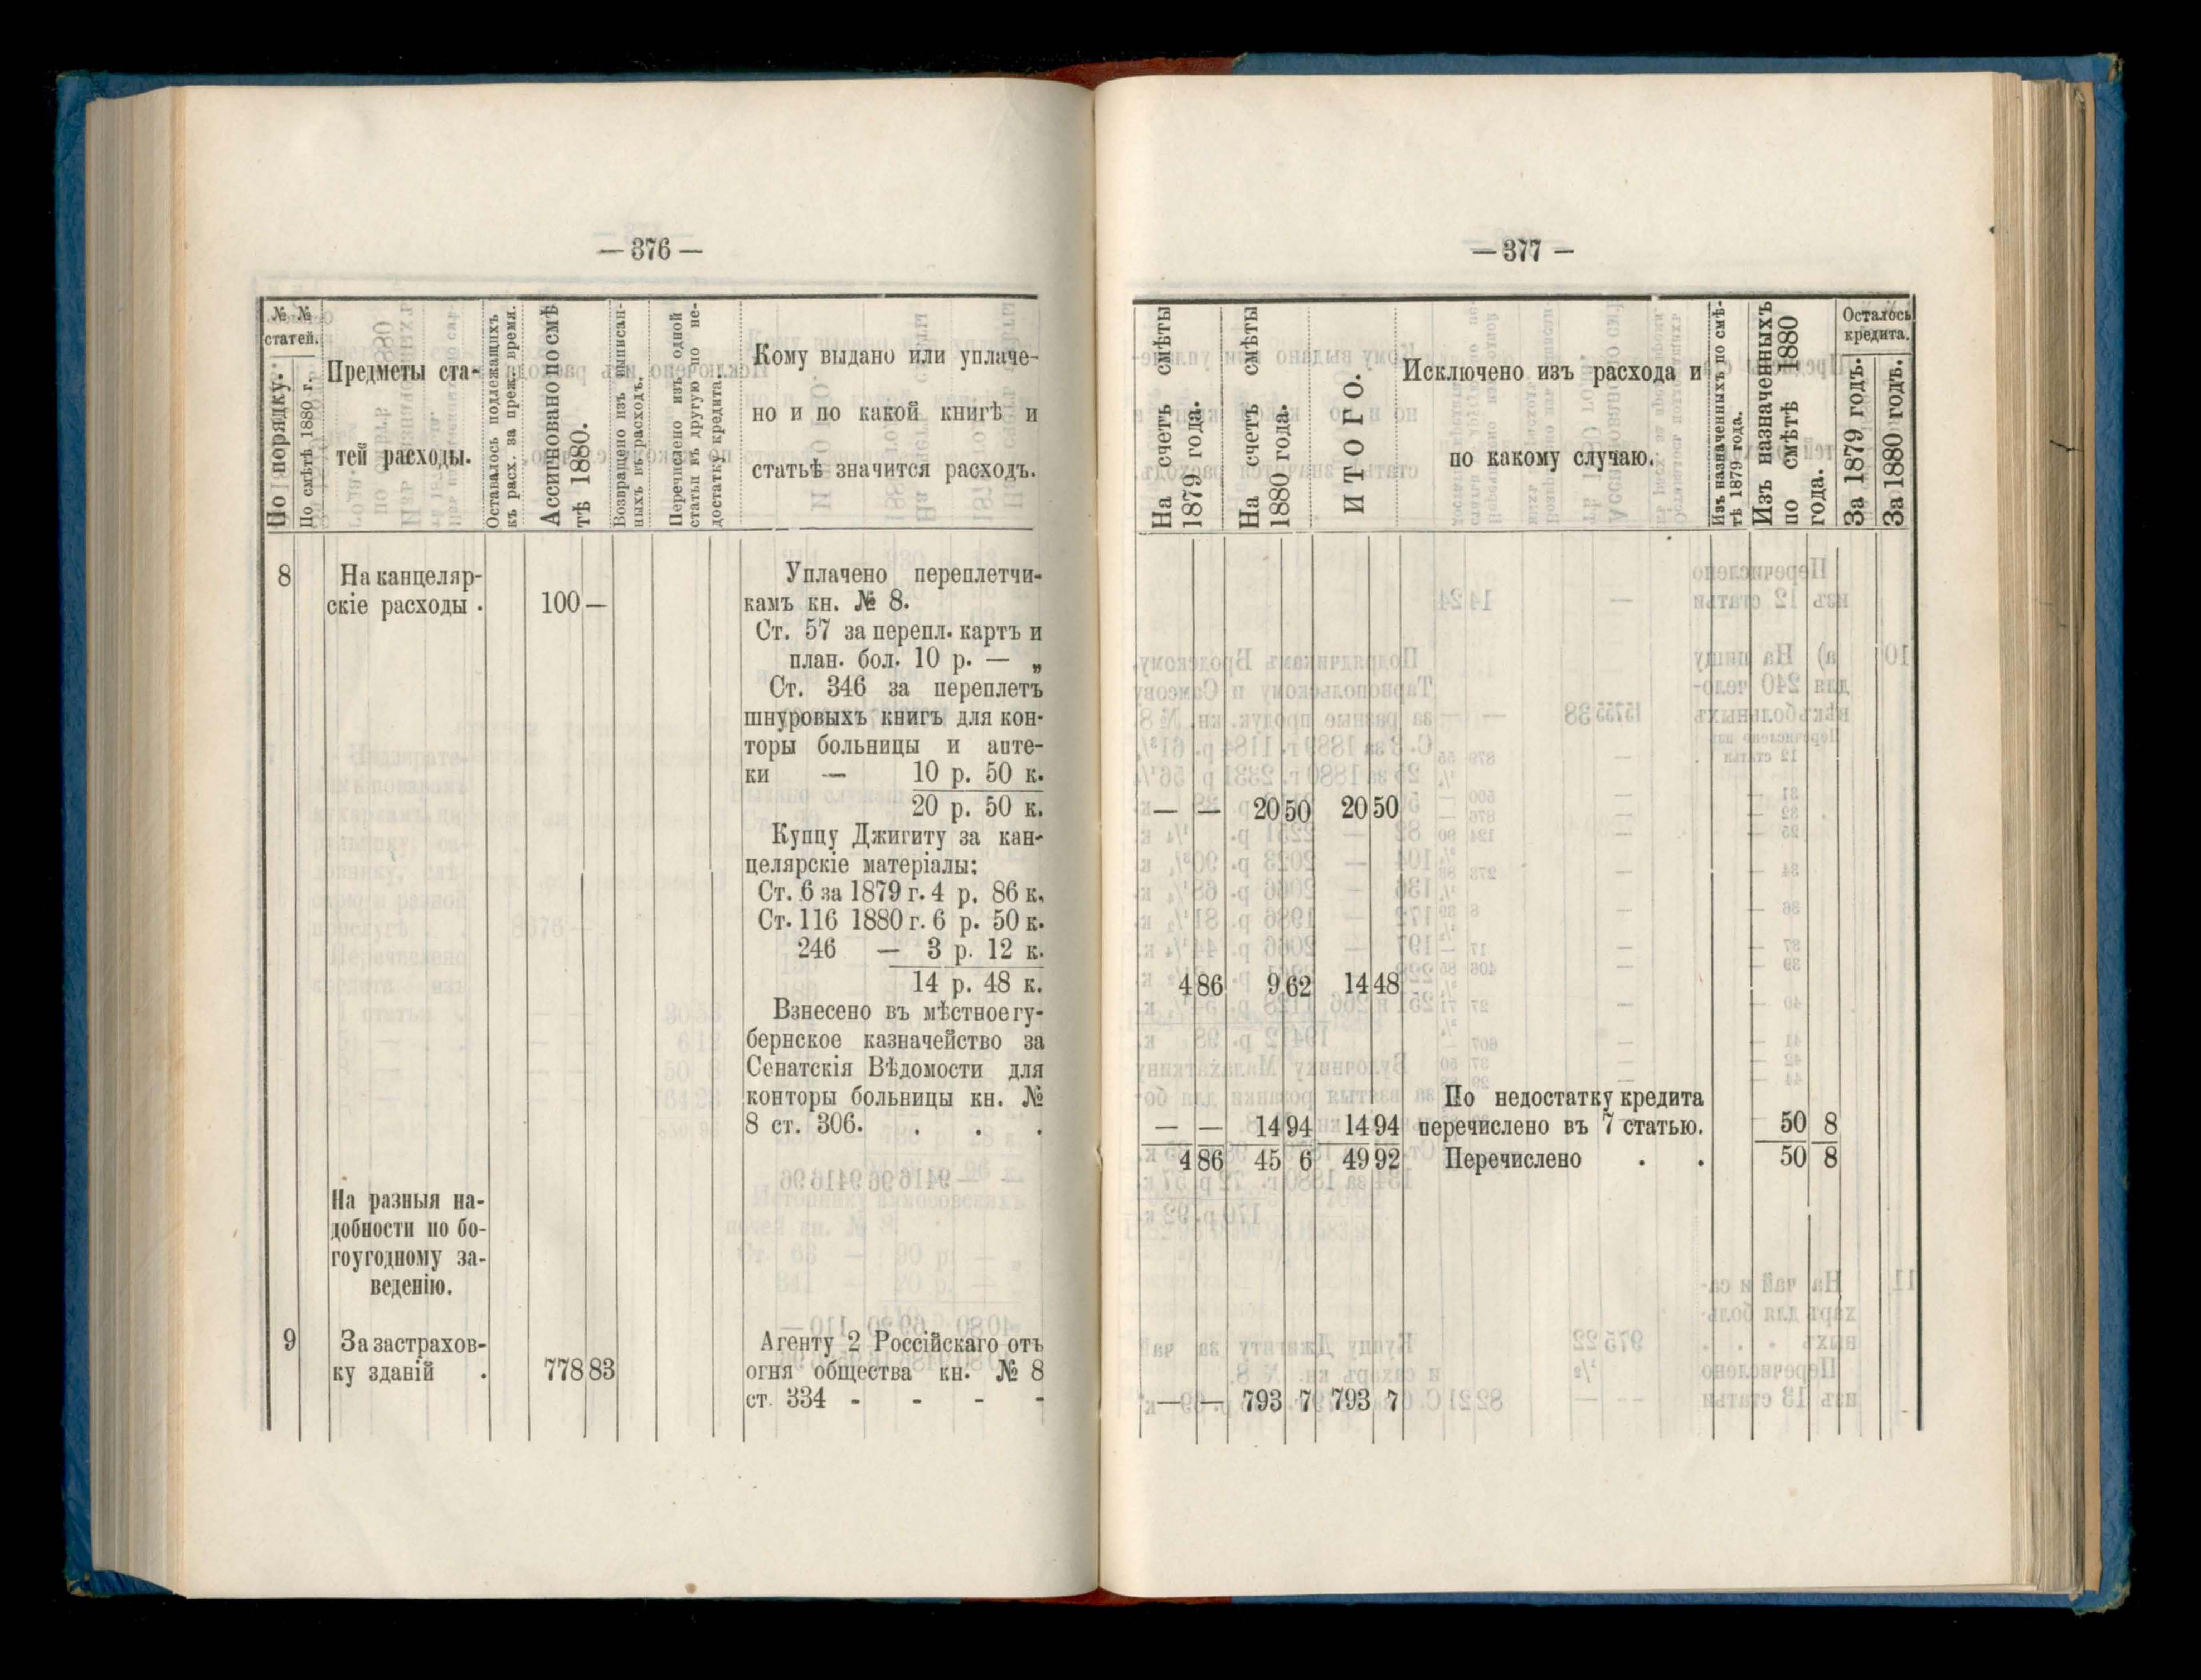 — 376 —
№ № статей.
По порядку.
По смѣтѣ 1880 г.
Предметы ста-
тей расходы.
Оставалось подлежащихъ
къ расх. за преж. время.
Ассигновано по смѣ
тѣ 1880.
Возвращено изъ выписан-
ныхъ въ расходъ.
Перечислено изъ одной
статьи въ другую по не-
достатку кредита.
Кому выдано или уплаче-
но и по какой книгѣ и
статьѣ значится расходъ.
8 На канцеляр-
скіе расходы . 100 —
Уплачено переплетчи-
камъ кн. № 8.
Ст. 57 за перепл. картъ и
план. бол. 10 р. — „
Ст. 346 за переплетъ
шнуровыхъ книгъ для кон-
торы больницы и апте-
ки — 10 р. 50 к.
20 р. 50 к.
Купцу Джигиту за кан-
целярскіе матеріалы:
Ст. 6 за 1879 г. 4 р. 86 к.
Ст. 116 1880 г. 6 р. 50 к.
246 — 3 р. 12 к.
14 р. 48 к.
Взнесено въ мѣстное гу-
бернское казначейство за
Сенатскія Вѣдомости для
конторы больницы кн. №
8 ст. 306. . . .
На разныя на-
добности по бо-
гоугодному за-
веденію.
9 За застрахов-
ку зданій . 778 83
Агенту 2 Россійскаго отъ
огня общества кн. № 8
ст. 334 - - - -
— 377 —
На счетъ смѣты
1879 года.
На счетъ смѣты
1880 года.
ИТОГО.
Исключено изъ расхода и
по какому случаю.
Изъ назначенныхъ по смѣ-
тѣ 1879 года.
Изъ назначенныхъ
по смѣтѣ 1880
года.
Осталось
кредита.
За 1879 годъ.
За 1880 годъ.
— — 20 50 20 50
4 86 9 62 14 48
По недостатку кредита
— — 14 94 14 94 перечислено въ 7 статью. 50 8
4 86 45 6 49 92 Перечислено . . 50 8
— — 793 7 793 7